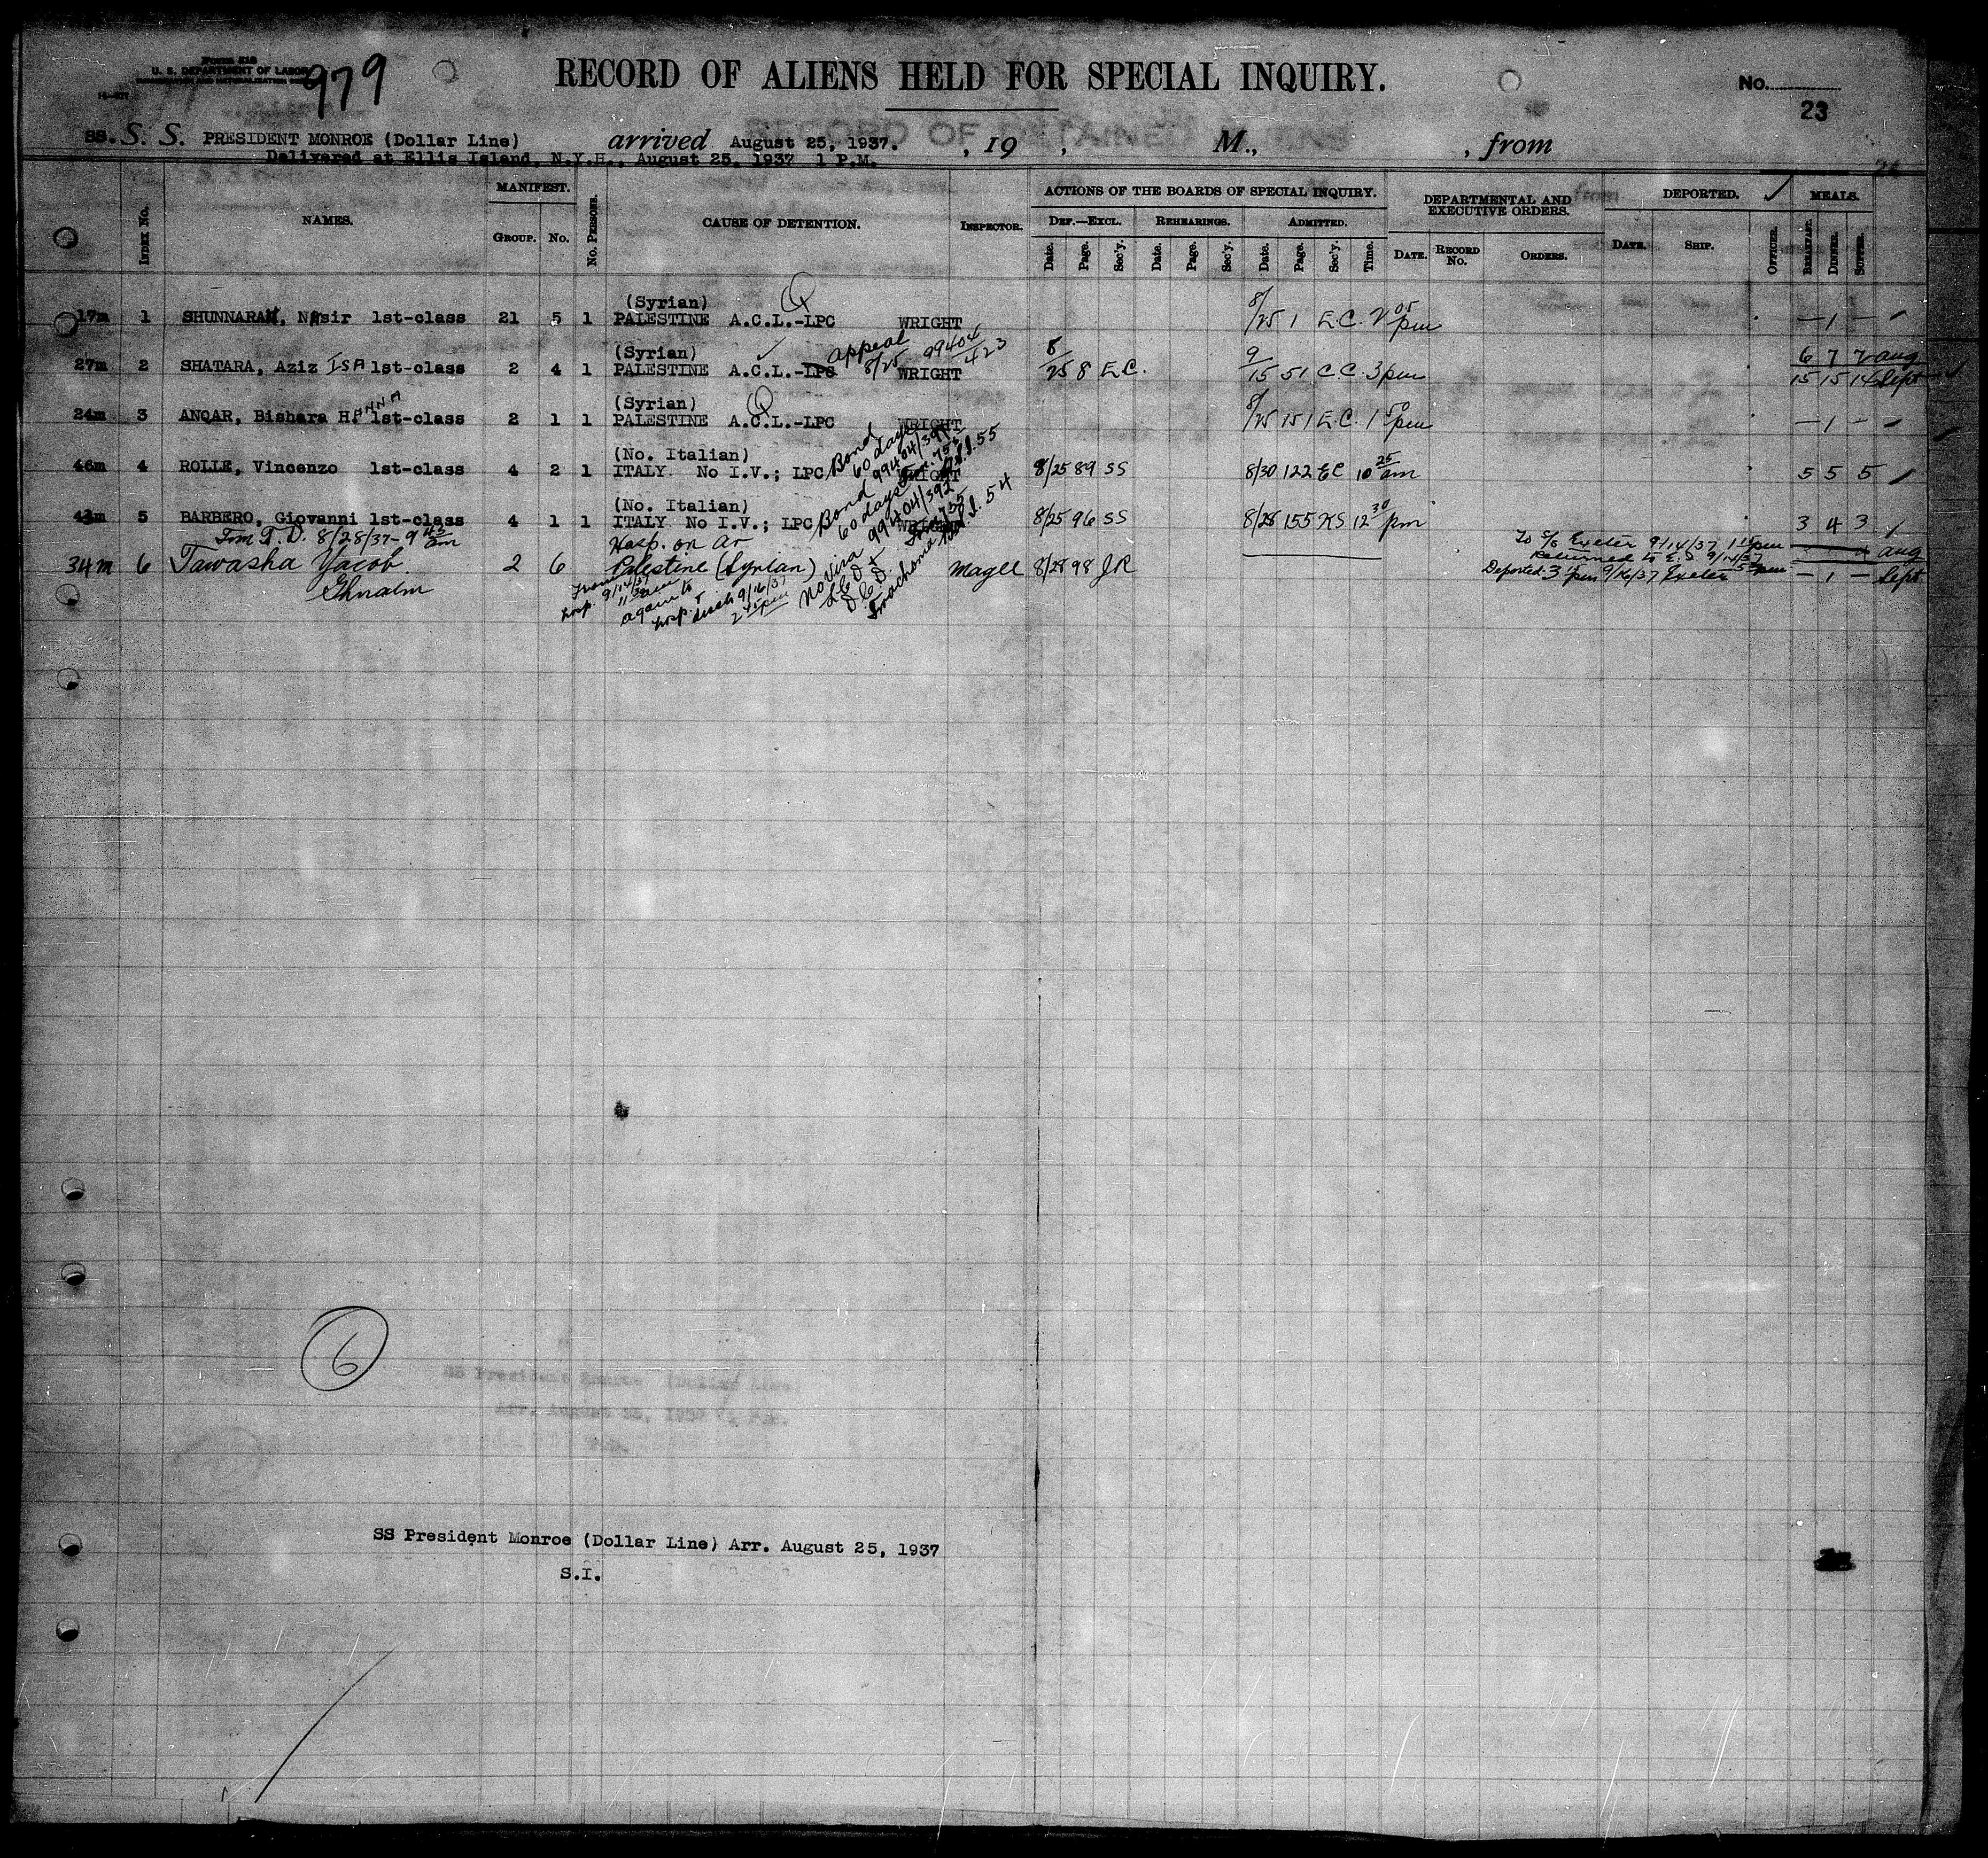 Form 518
U. S. DEPARTMENT OF LABOR
979
RECORD OF ALIENS HELD FOR SPECIAL INQUIRY.
No.
23
SS. S. S. PRESIDENT MONROE (Dollar Line) arrived August 25, 1937. , 19 , M., , from
Delivered at Ellis Island, N.Y.H., August 25, 1937 1 P.M.
INDEX NO. NAMES. MANIFEST. GROUP. NO. NO. PERSONS. CAUSE OF DETENTION. INSPECTOR. ACTIONS OF THE BOARDS OF SPECIAL INQUIRY. DEPARTMENTAL AND EXECUTIVE ORDERS. DEPORTED. MEALS.
DEF.—EXCL. REHEARINGS. ADMITTED.
Date. Page. Sec'y. Date. Page. Sec'y. Date. Page. Sec'y. Time. DATE. RECORD NO. ORDERS. DATE. SHIP. OFFICER. BREAKFAST. DINNER. SUPPER.
(Syrian)
17m 1 SHUNNARAH, NAsir 1st-class 21 5 1 PALESTINE A.C.L.-LPC WRIGHT 8/25 1 E.C. 2 05 pm — 1 —
(Syrian) appeal 8/25 99404/423
27m 2 SHATARA, Aziz ISA 1st-class 2 4 1 PALESTINE A.C.L.-LPC WRIGHT 8/25 8 E.C. 9/15 51 C.C. 3 pm 6 7 7 Aug
15 15 14 Sept
(Syrian)
24m 3 ANQAR, Bishara HANNA 1st-class 2 1 1 PALESTINE A.C.L.-LPC WRIGHT 8/25 151 E.C. 1 50 pm — 1 —
(No. Italian) Bond 60 days
46m 4 ROLLE, Vincenzo 1st-class 4 2 1 ITALY No I.V.; LPC WRIGHT 8/25 89 SS 8/30 122 EC 10 25 am 5 5 5
(No. Italian) Bond 60 days 99404/392
43m 5 BARBERO, Giovanni 1st-class 4 1 1 ITALY No I.V.; LPC WRIGHT 8/25 96 SS 8/28 155 KS 12 30 pm 3 4 3
From T.D. 8/28/37 - 9 45 am
Hosp. on ar
34m 6 Tawasha Yacob 2 6 Palestine (Syrian) Magee 8/28 98 JR
To S/S Exeter 9/14/37 1 15 pm
Returned to E.I. 9/14/37
Aug
Deported 3 15 pm 9/16/37 Exeter — 1 — Sept
From hosp. 9/14/37 11 30 am
again to hosp.
disch 9/16/37 2 45 pm
No Visa
Trachoma
6
SS President Monroe (Dollar Line) Arr. August 25, 1937
S.I.